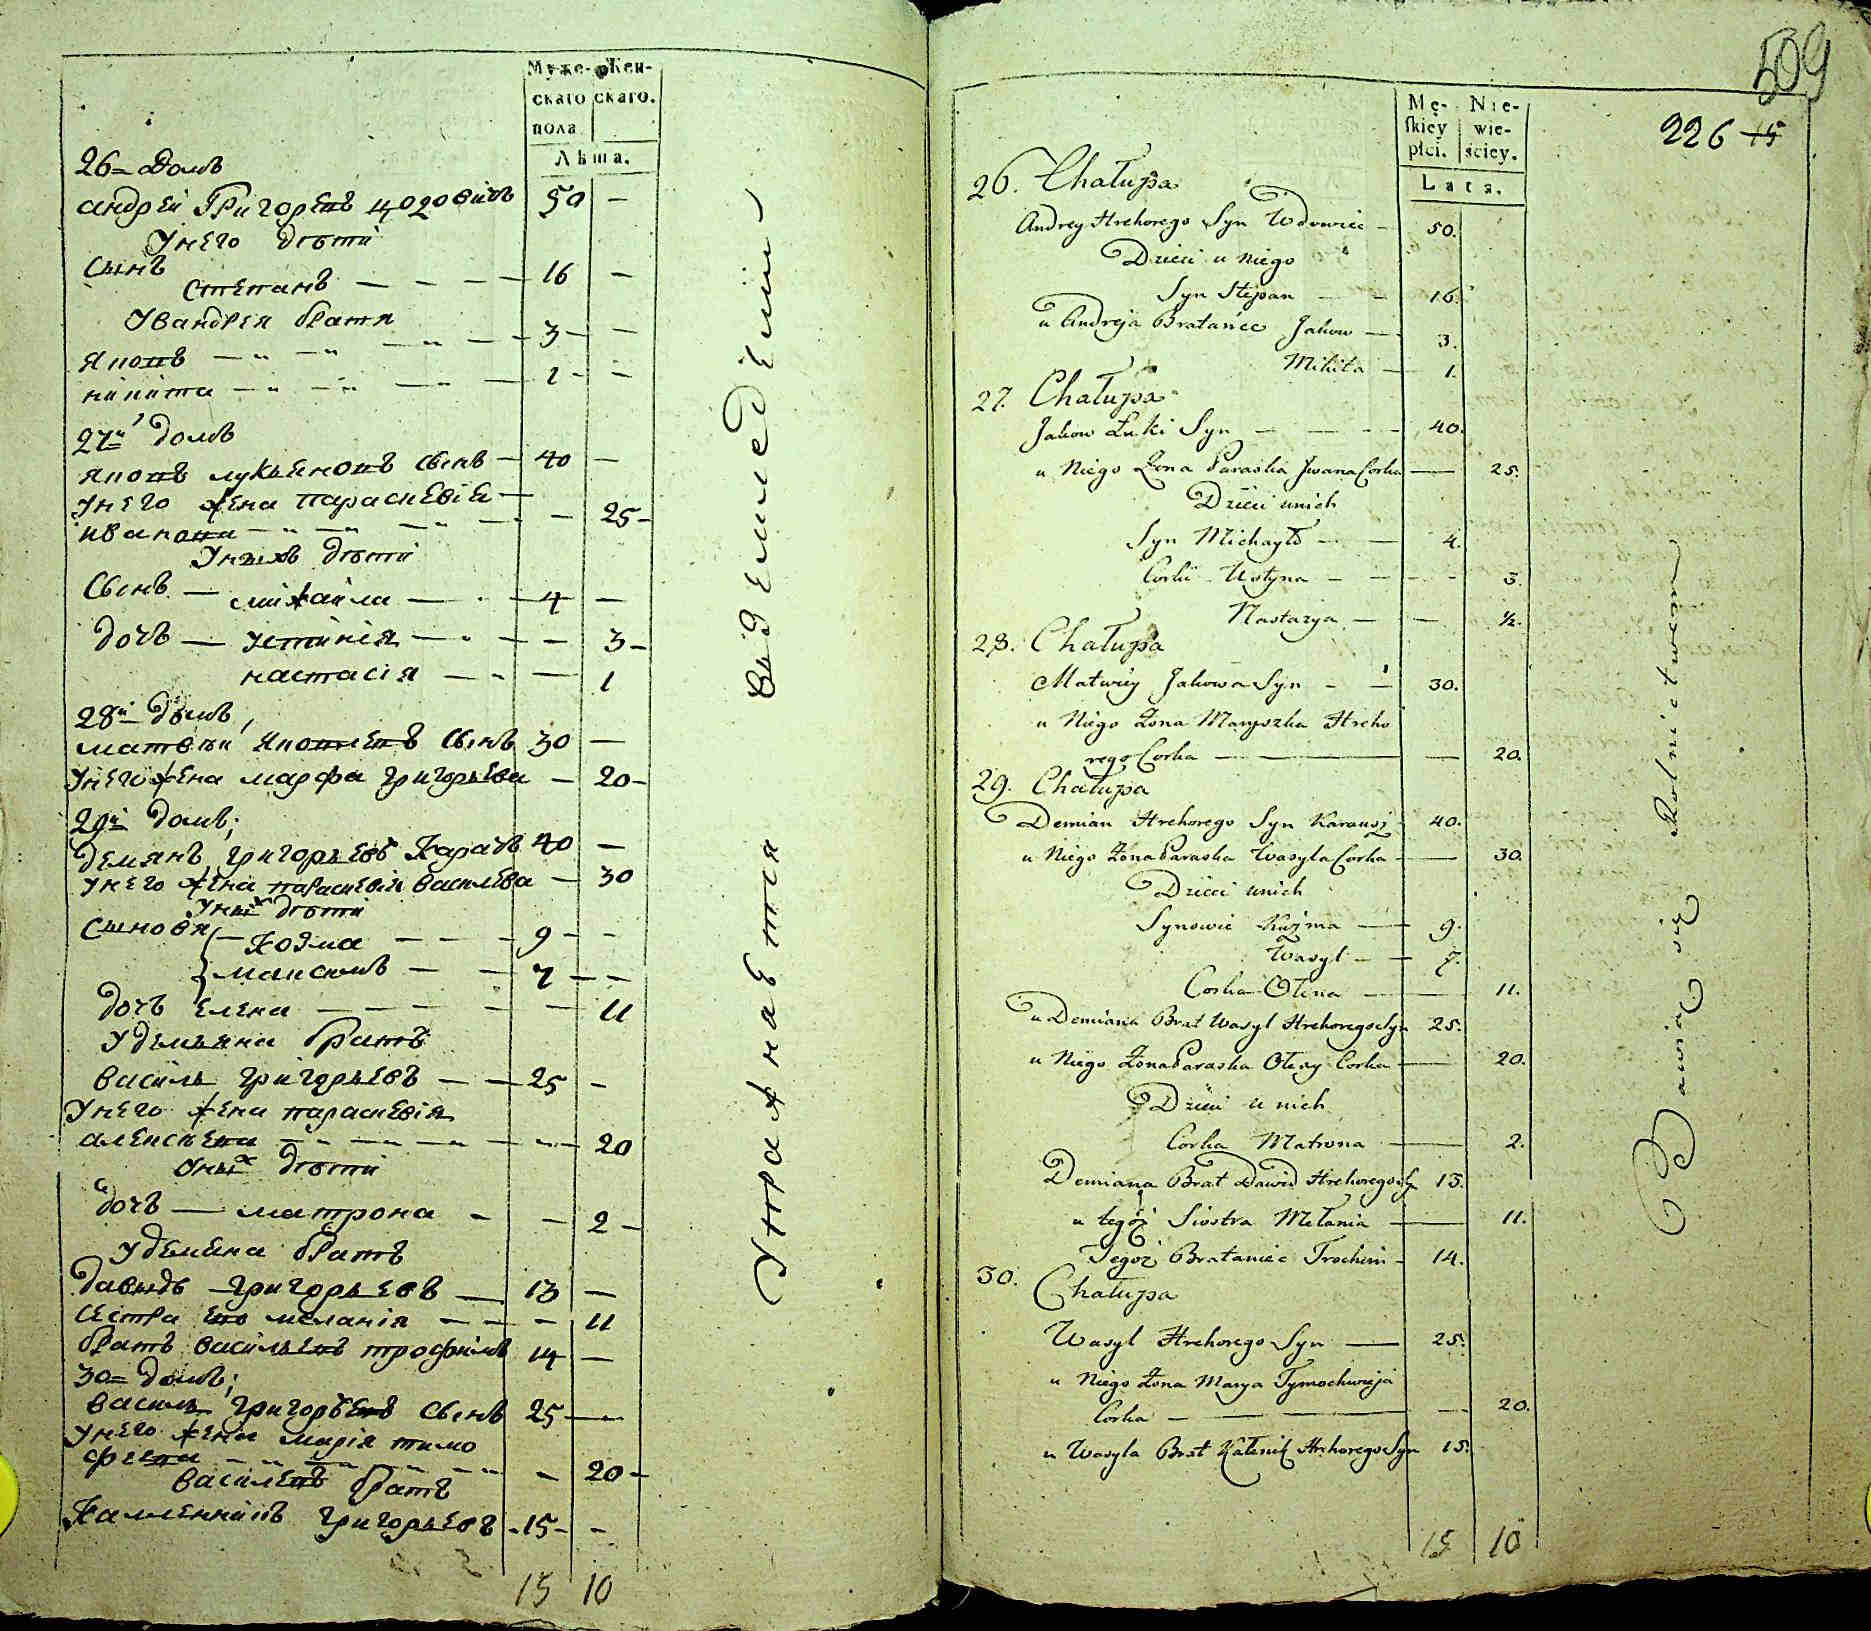 Муже- Жен-
скаго скаго.
пола
Лѣта.
26 Домъ
андрей Григорьевъ удовицъ 50 —
Унего дѣти
Сынъ
Степанъ — — — — 16 —
Уандрея братя
Яковъ — — — — 3 — —
никита — — — — 1 — —
27й домъ
Яковъ лукьяновъ сынъ — 40 —
Унего жена параскевiя —
иванова — — — — — 25 —
Уныхъ дѣти
Сынъ — михайла — — 4 —
дочь — устинiя — — — 3 —
настасiя — — — 1
28й домъ,
матвѣй яковлевъ сынъ 30 —
Унего жена марфа григорьева — 20 —
29й домъ;
демянъ григорьевъ 40 —
Унего жена параскевiя васильева — 30
Уныхъ дѣти
Сыновя — козма — — — 9 — —
максимъ — — 7 — —
дочь елена — — — — — 11
Удемьяна братъ
василь григорьевъ — — 25 —
Унего жена параскевiя
алексѣева — — — — — 20
Уныхъ дѣти
дочь — матрона — — 2 —
Удемяна братъ
давыдъ — григорьевъ — 13 —
сестра его меланiя — — — 11
братъ васильевъ трофимъ 14 —
30 домъ;
василь григорьевъ сынъ 25 — —
Унего жена марiя тимо
феева — — — — — — 20 —
василевъ братъ
каленникъ григорьевъ - 15 - —
15 10
Упражнаетья въземледѣлии
509
226 15
Mę- Nie-
skiey wie-
płci. ściey.
Lata.
26. Chałupa
Andrey Hrehorego Syn Wdowiec — 50.
Dzieci u Niego
Syn Stepan — — 16.
u Andreja Bratańce Jakow — 3.
Mikita — 1.
27. Chałupa
Jakow Łuki Syn — — — — 40.
u Niego Żona Paraska Jwana Corka — 25.
Dzieci unich
Syn Michayło — — 4.
Corki Ustyna — — — 3.
Nastazya — — ½.
28. Chałupa
Matwiey Jakowa Syn — — 30.
u Niego Żona Maryszka Hreho
rego Corka — — 20.
29. Chałupa
Demian Hrehorego Syn 40.
u Niego Żona Paraska Wasyla Corka — 30.
Dzieci unich
Synowie Kuźma — 9.
Wasyl — — 7.
Corka Olena — — 11.
u Demiana Brat Wasyl Hrehorego Syn 25.
u Niego Żona Paraska Olexy Corka — 20.
Dzieci u nich
Corka Matrona — 2.
Demiana Brat Dawid Hrehorego Sy 13.
u tegoż Siostra Mełania — 11.
Tegoż Brataniec Trochim — 14.
30. Chałupa
Wasyl Hrehorego Syn — 25.
u Niego Żona Marya Tymochwieja
Corka — — — — 20.
u Wasyla Brat Kalenik Hrehorego Syn 15.
15 10
Bawią się Rolnictwem